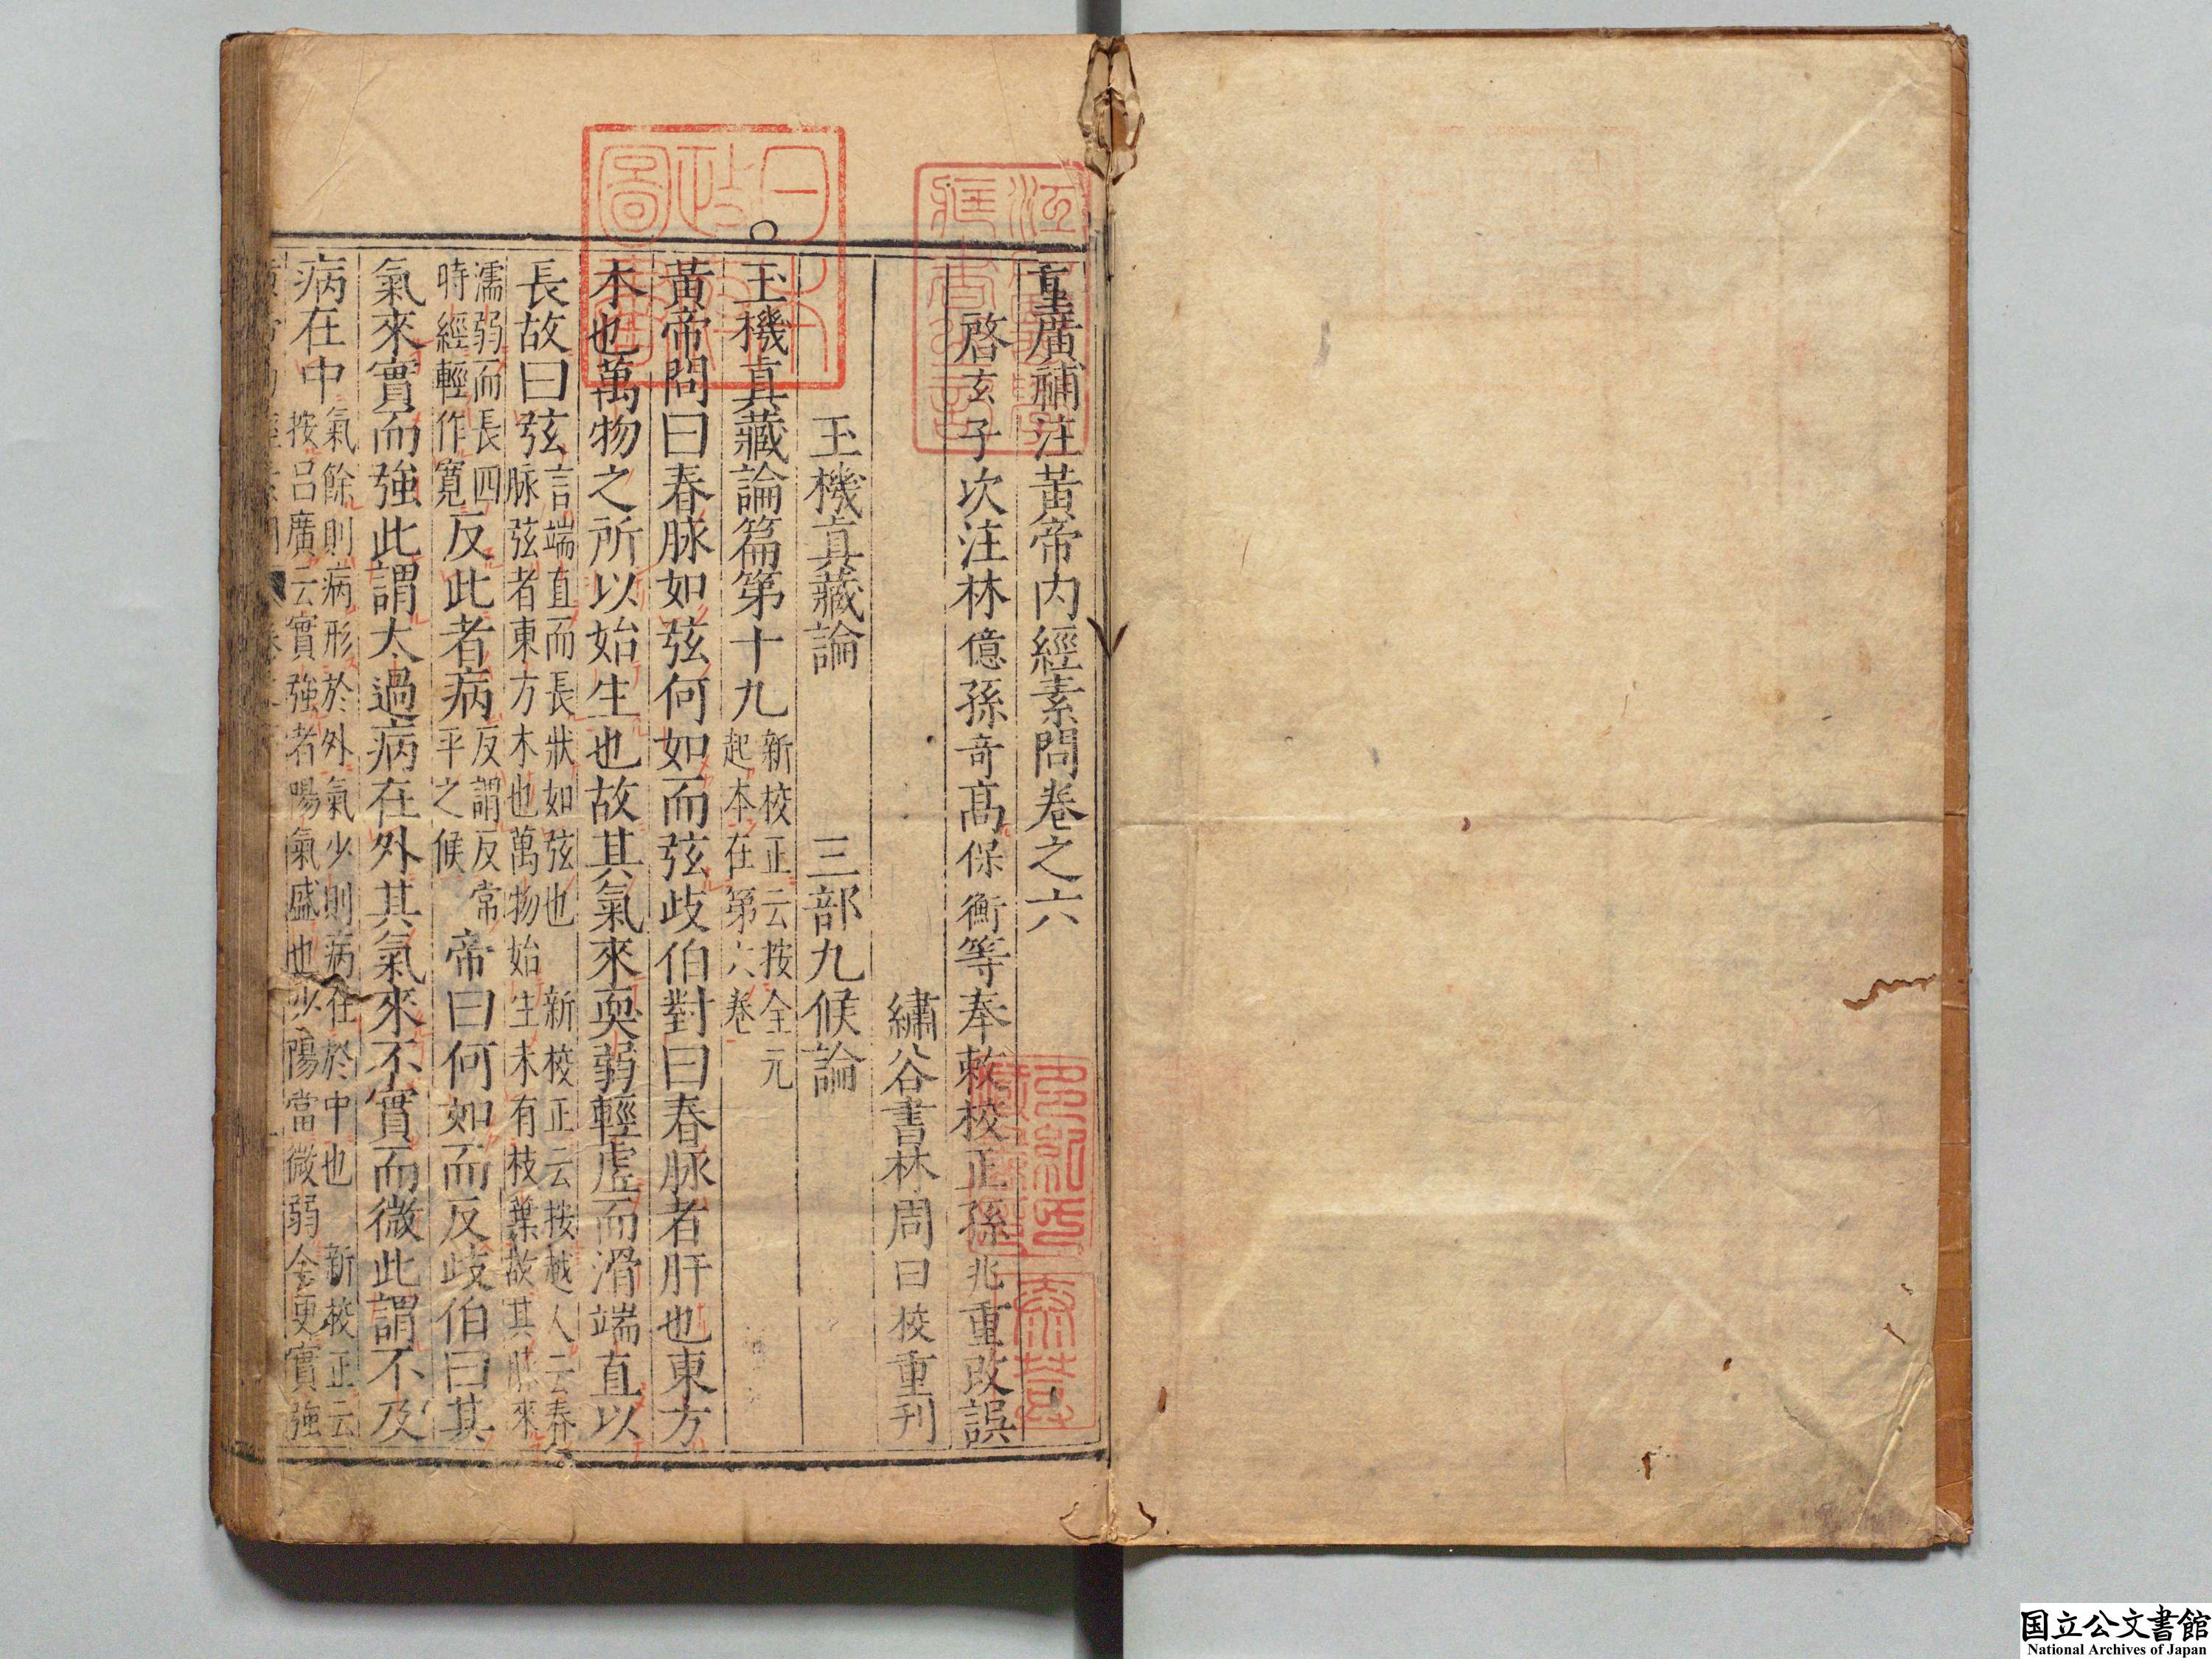 重廣補注黃帝内經素問卷之六
啓玄子次注林億孫奇高保衡等奉敕校正孫兆重改誤
繡谷書林周曰校重刊
玉機真藏論　三部九候論
玉機真藏論篇第十九新校正云按全元起本在第六卷
黃帝問曰春脉如弦何如而弦歧伯對曰春脉者肝也東方
木也萬物之所以始生也故其氣來耎弱輕虛而滑端直以
長故曰弦言端直而長狀如弦也　新校正云按越人云春脉弦者東方木也萬物始生未有枝葉故其脉來
濡弱而長四時經輕作寬反此者病反謂反常平之候帝曰何如而反歧伯曰其
氣來實而強此謂太過病在外其氣來不實而微此謂不及
病在中氣餘則病形於外氣少則病在於中也　新校正云按吕廣云實強者陽氣盛也少陽當微弱今更實強
国立公文書館
National Archives of Japan